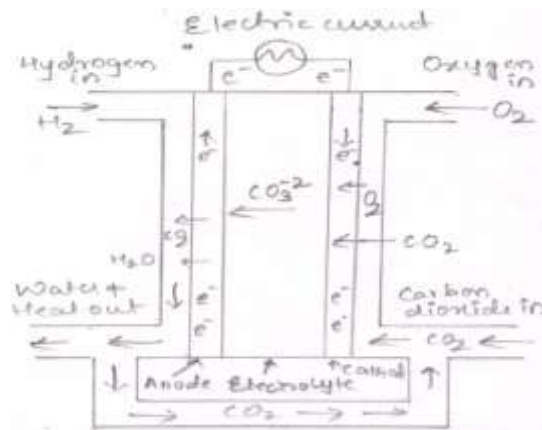 Electric current
Hydrogen
in
Oxygen
in
e⁻ e⁻
H₂
O₂
e⁻ e⁻
CO₃⁻²
O₂
CO₂
H₂O
CO₂
Water +
Heat out
Carbon
dioxide in
e⁻ e⁻
e⁻ e⁻
CO₂
Anode Electrolyte Cathod
CO₂